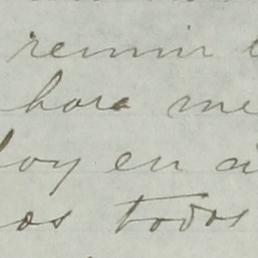 reunir
hora me
hoy en a
os todos